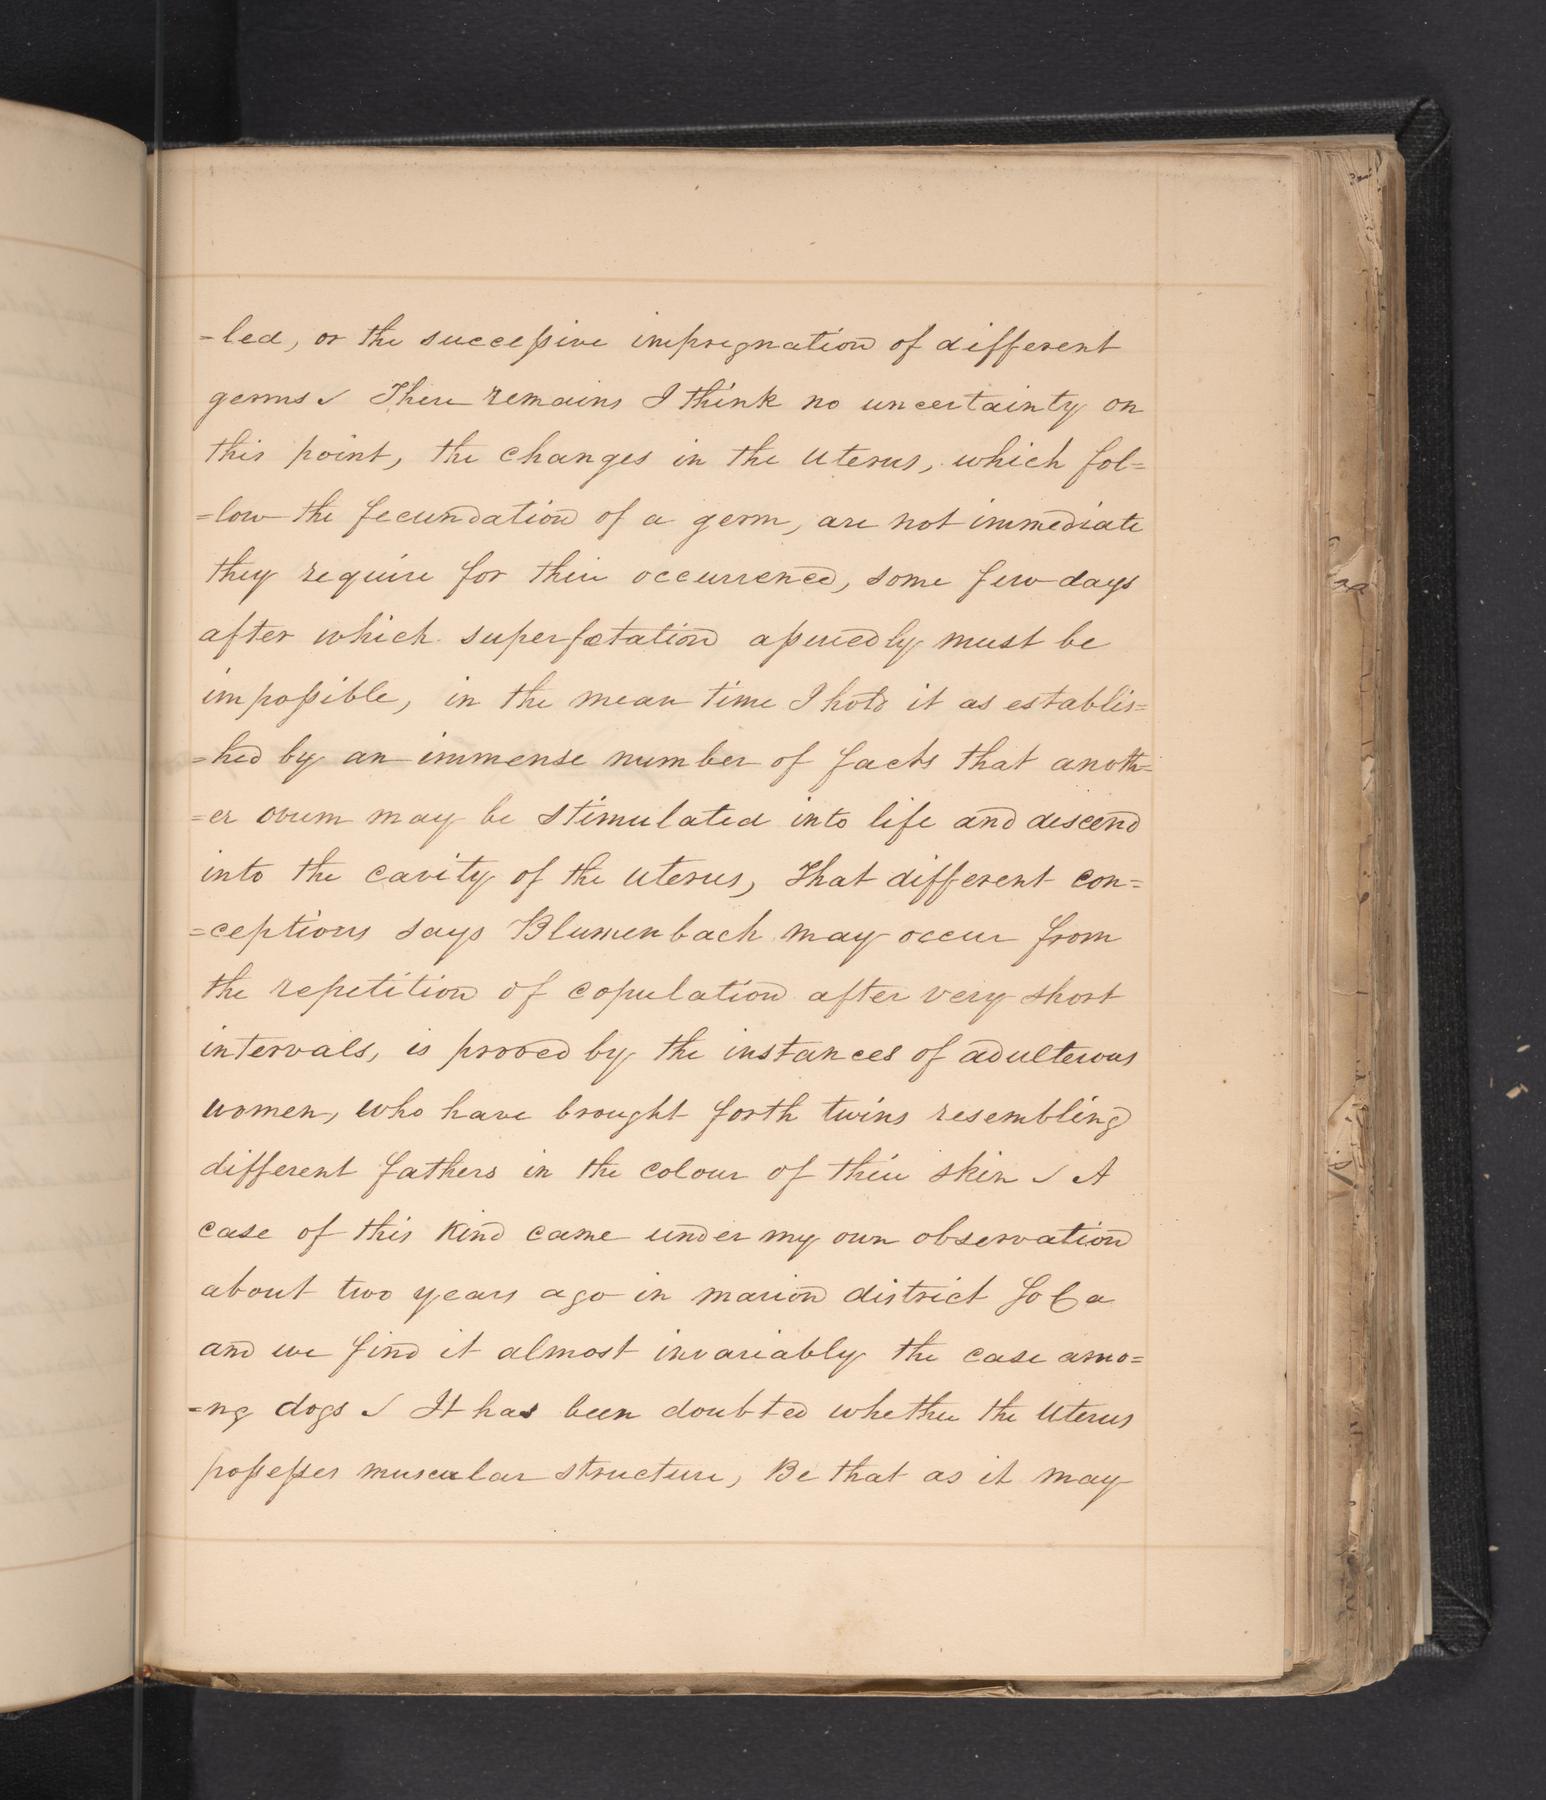 =led, or the successive impregnation of different
germs. There remains I think no uncertainty on
this point, the changes in the uterus, which fol=
=low the fecundation of a germ, are not immediate
they require for their occurrence, some few days
after which superfœtation assuredly must be
impossible, in the mean time I hold it as establis=
=hed by an immense number of facts that anoth=
=er ovum may be stimulated into life and descend
into the cavity of the uterus, That different con=
=ceptions says Blumenbach may occur from
the repetition of copulation after very short
intervals, is proved by the instances of adulterous
women, who have brought forth twins resembling
different fathers in the colour of their skin. A
case of this kind came under my own observation
about two years ago in marion district So Ca
and we find it almost invariably the case amo=
=ng dogs. It has been doubted whether the Uterus
possesses muscular structure, Be that as it may